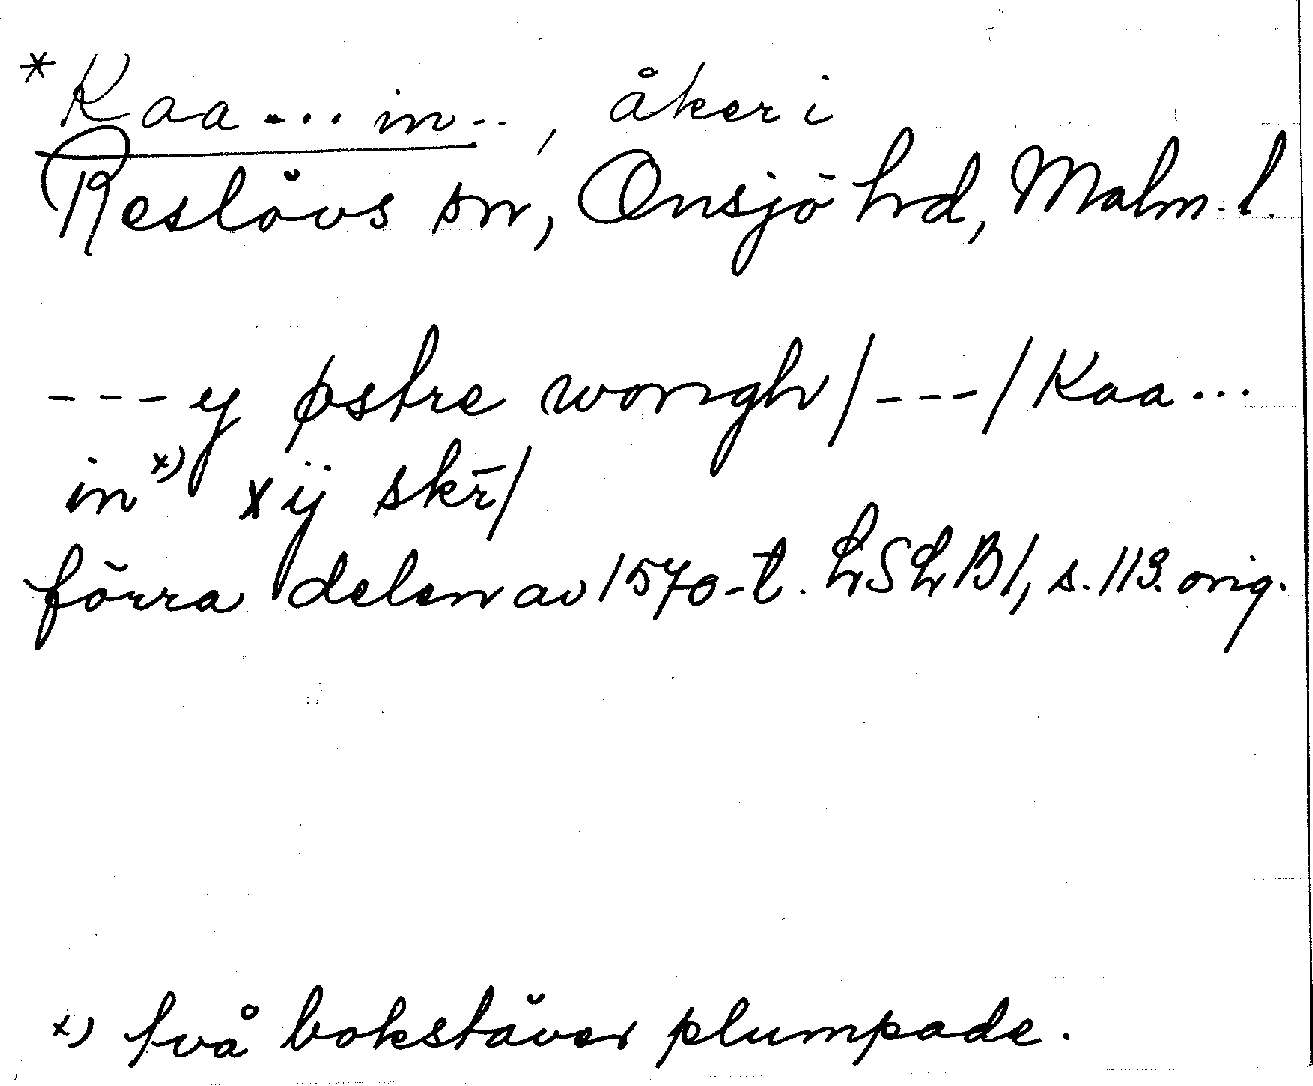 *Kaa.... in.., åker i
Reslövs sn, Onsjö hd, Malm. l.
---y østre wongh/---/Kaa...
in x) xij skr̄/
förra delen av 1570-t. LSLB1, s. 113. orig.
x) två bokstäver plumpade.